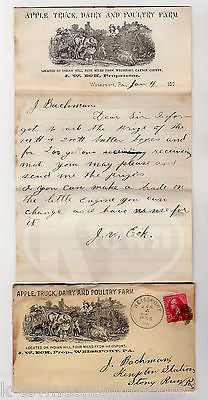 APPLE, TRUCK, DAIRY AND POULTRY FARM
LOCATED ON INDIAN HILL, FOUR MILES FROM WEISSPORT, CARBON COUNTY.
J. W. ECK, Proprietor.
Weissport, Pa., Jan 4 189
J Bachman
Dear Sir I for
got to ask the price of the
butter
and
for gallons receiving
mat you may please and
send me the prices
if you can make a trade on
the little engine you can
change as I have no use for
it
J. W. Eck.
APPLE, TRUCK, DAIRY AND POULTRY FARM
LOCATED ON INDIAN HILL, FOUR MILES FROM WEISSPORT.
J. W. ECK, Prop. WEISSPORT, PA.
J. Bachman
Kempton Station
Stony Run